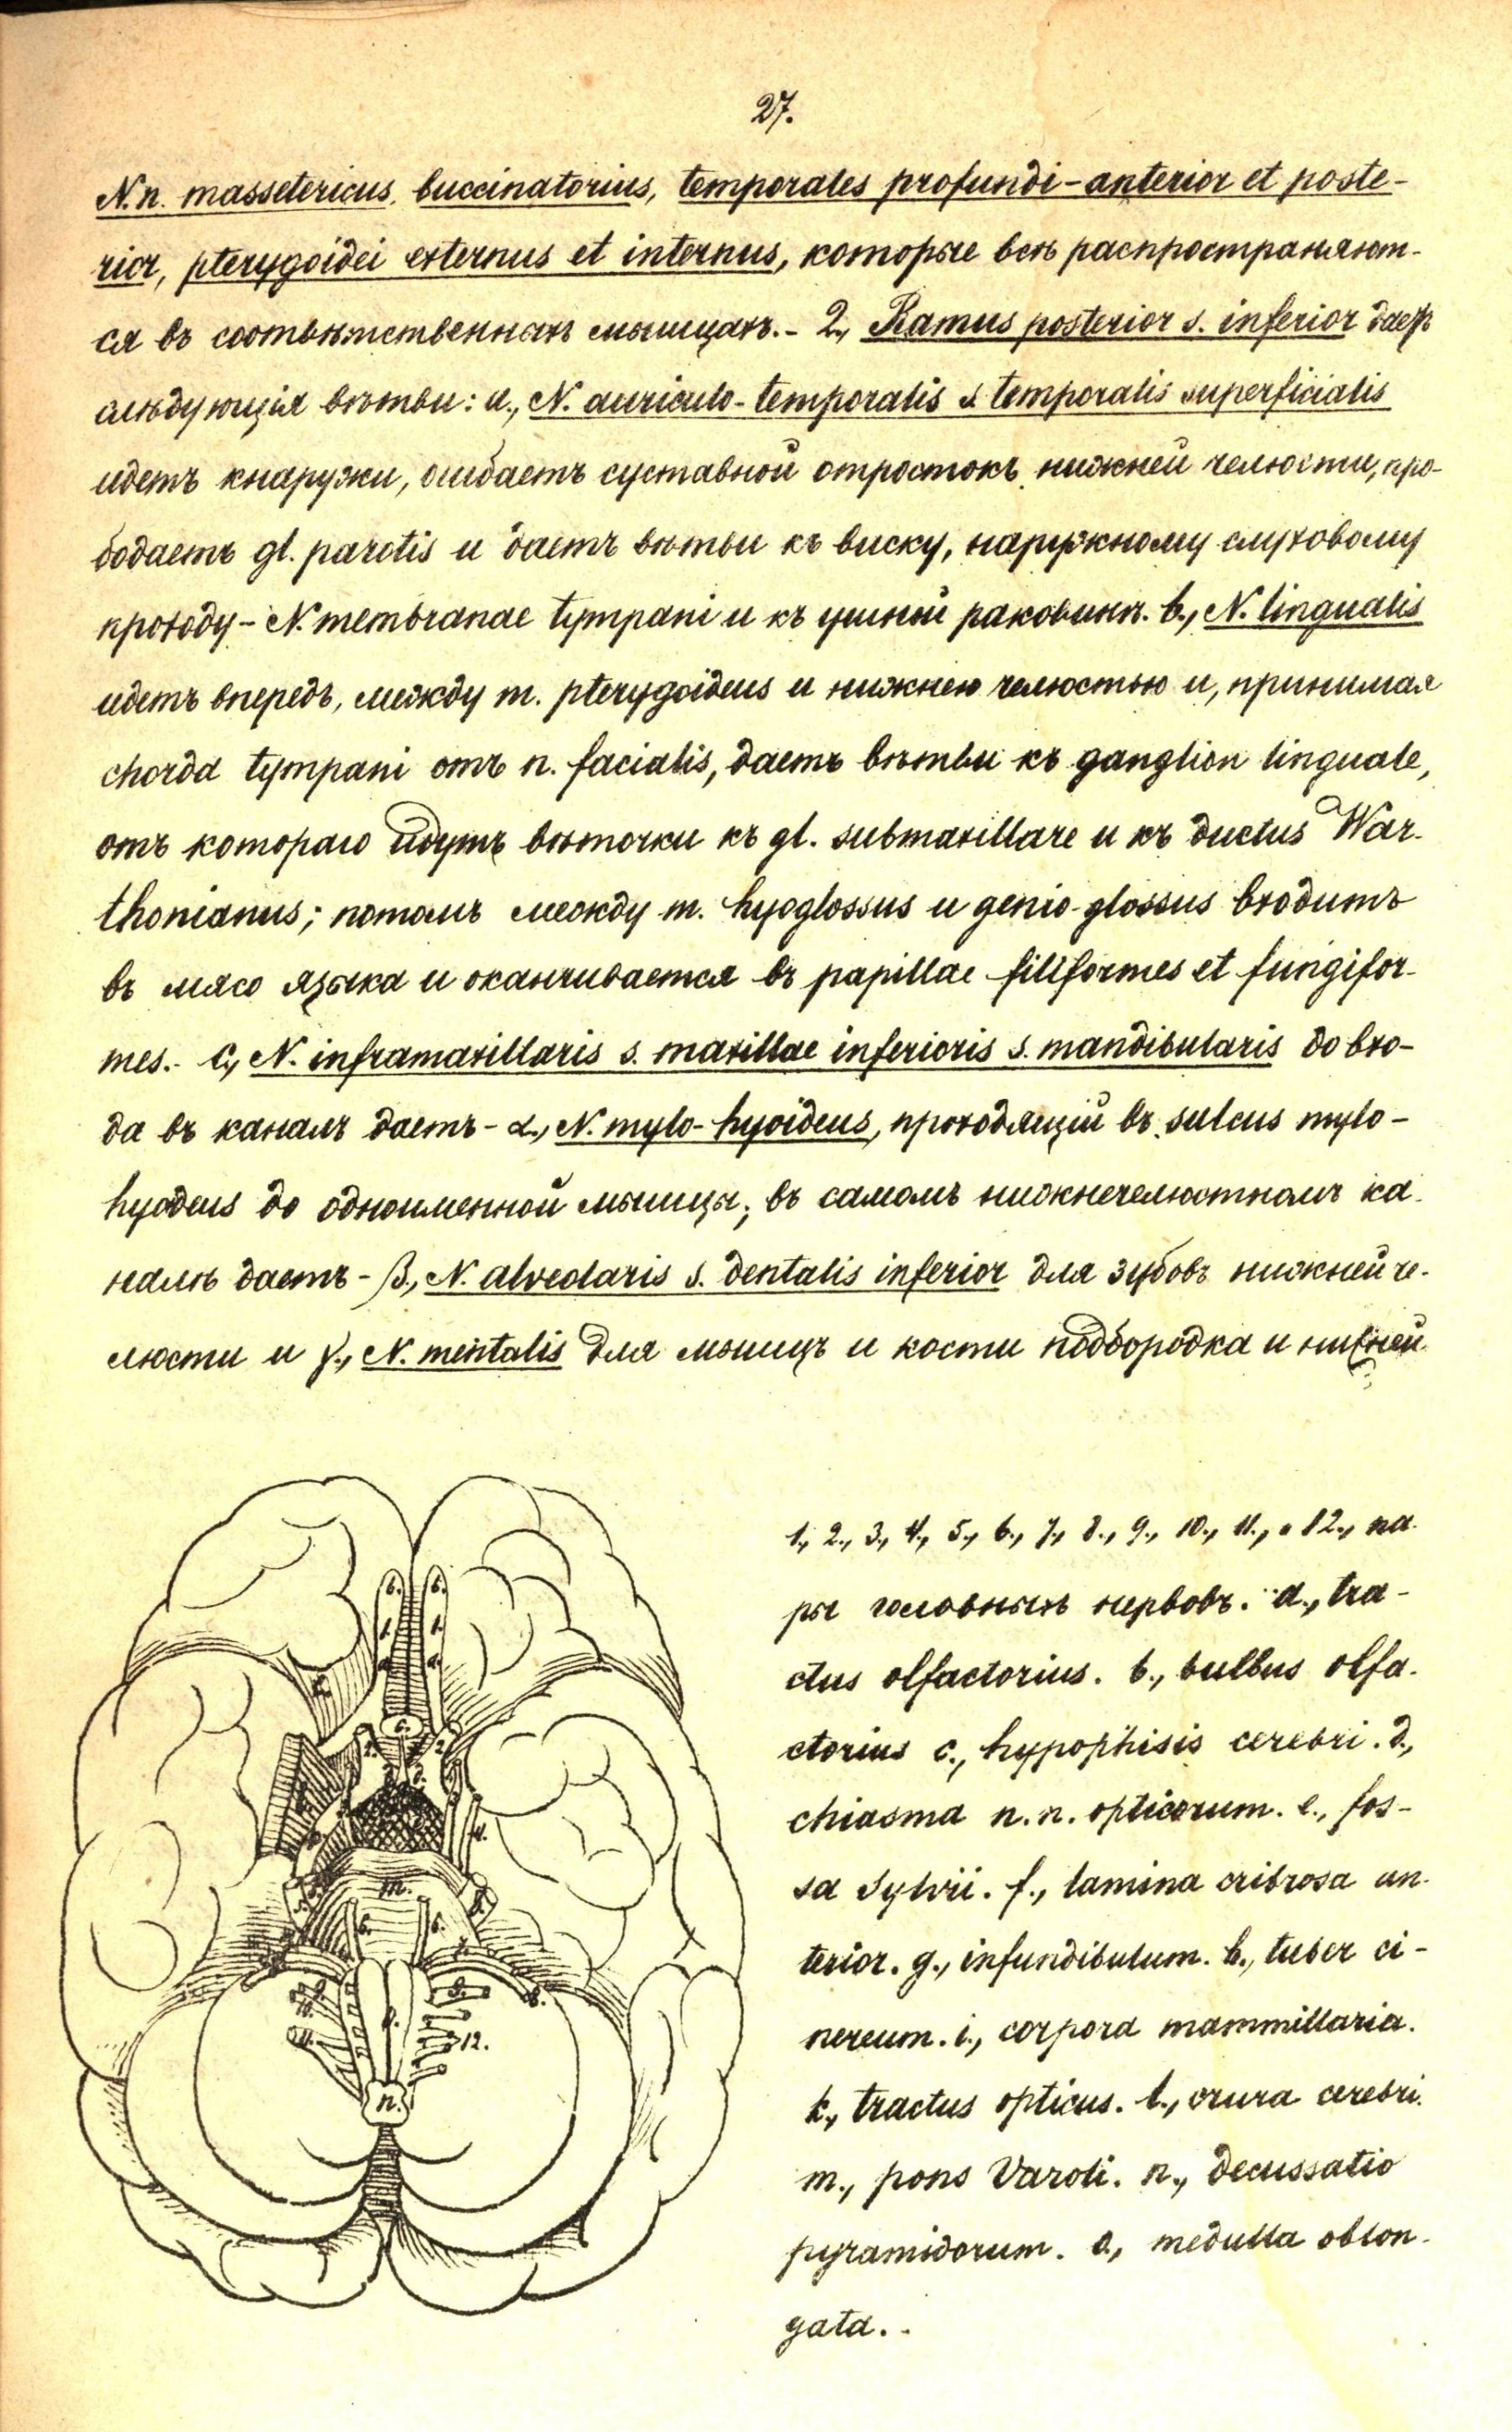 27.
N.n. massetericus, buccinatorius, temporales profundi-anterior et poste-
rior, pterygoidei externus et internus, которые всѣ распространяют-
ся въ соотвѣтственныхъ мышцахъ.- 2., Ramus posterior s. inferior даетъ
слѣдующія вѣтви: a., N. auriculo-temporalis s. temporalis superficialis
идетъ кнаружи, огибаетъ суставной отростокъ нижней челюсти, про-
бодаетъ gl. parotis и даетъ вѣтви къ виску, наружному слуховому
проходу - N. membranae tympani и къ ушной раковинѣ. b., N. lingualis
идетъ впередъ, между m. pterygoideus и нижнею челюстью и, принимая
chorda tympani отъ n. facialis, даетъ вѣтви къ ganglion linguale,
отъ котораго идутъ вѣточки къ gl. submaxillare и къ ductus War-
thonianus; потомъ между m. hyoglossus и genio-glossus входитъ
въ мясо языка и оканчивается въ papillae filiformes et fungifor-
mes.- c., N. inframaxillaris s. maxillae inferioris s. mandibularis до вхо-
да въ каналъ даетъ - α., N. mylo-hyoideus, проходящій въ sulcus mylo-
hyodeus до одноименной мышцы; въ самомъ нижнечелюстномъ ка-
налѣ даетъ - β., N. alveolaris s. dentalis inferior для зубовъ нижней че-
люсти и γ., N. mentalis для мышцъ и кости подбородка и нижней
1., 2., 3., 4., 5., 6., 7., 8., 9., 10., 11., и 12., па-
ры головныхъ нервовъ. a., tra-
ctus olfactorius. b., bulbus olfa-
ctorius c., hypophisis cerebri. d.,
chiasma n.n. opticorum. e., fos-
sa Sylvii. f., lamina cribrosa an-
terior. g., infundibulum. h., tuber ci-
nereum. i., corpora mammillaria.
k., tractus opticus. l., crura cerebri.
m., pons Varoli. n., decussatio
pyramidorum. o., medulla oblon-
gata.
b. b.
1. 1.
a. a.
c.
2. 2.
4.
m.
5. 5.
6. 6.
9. 9.
8.
11.
12.
n.